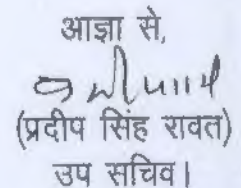 आज्ञा से,
(प्रदीप सिंह रावत)
उप सचिव।